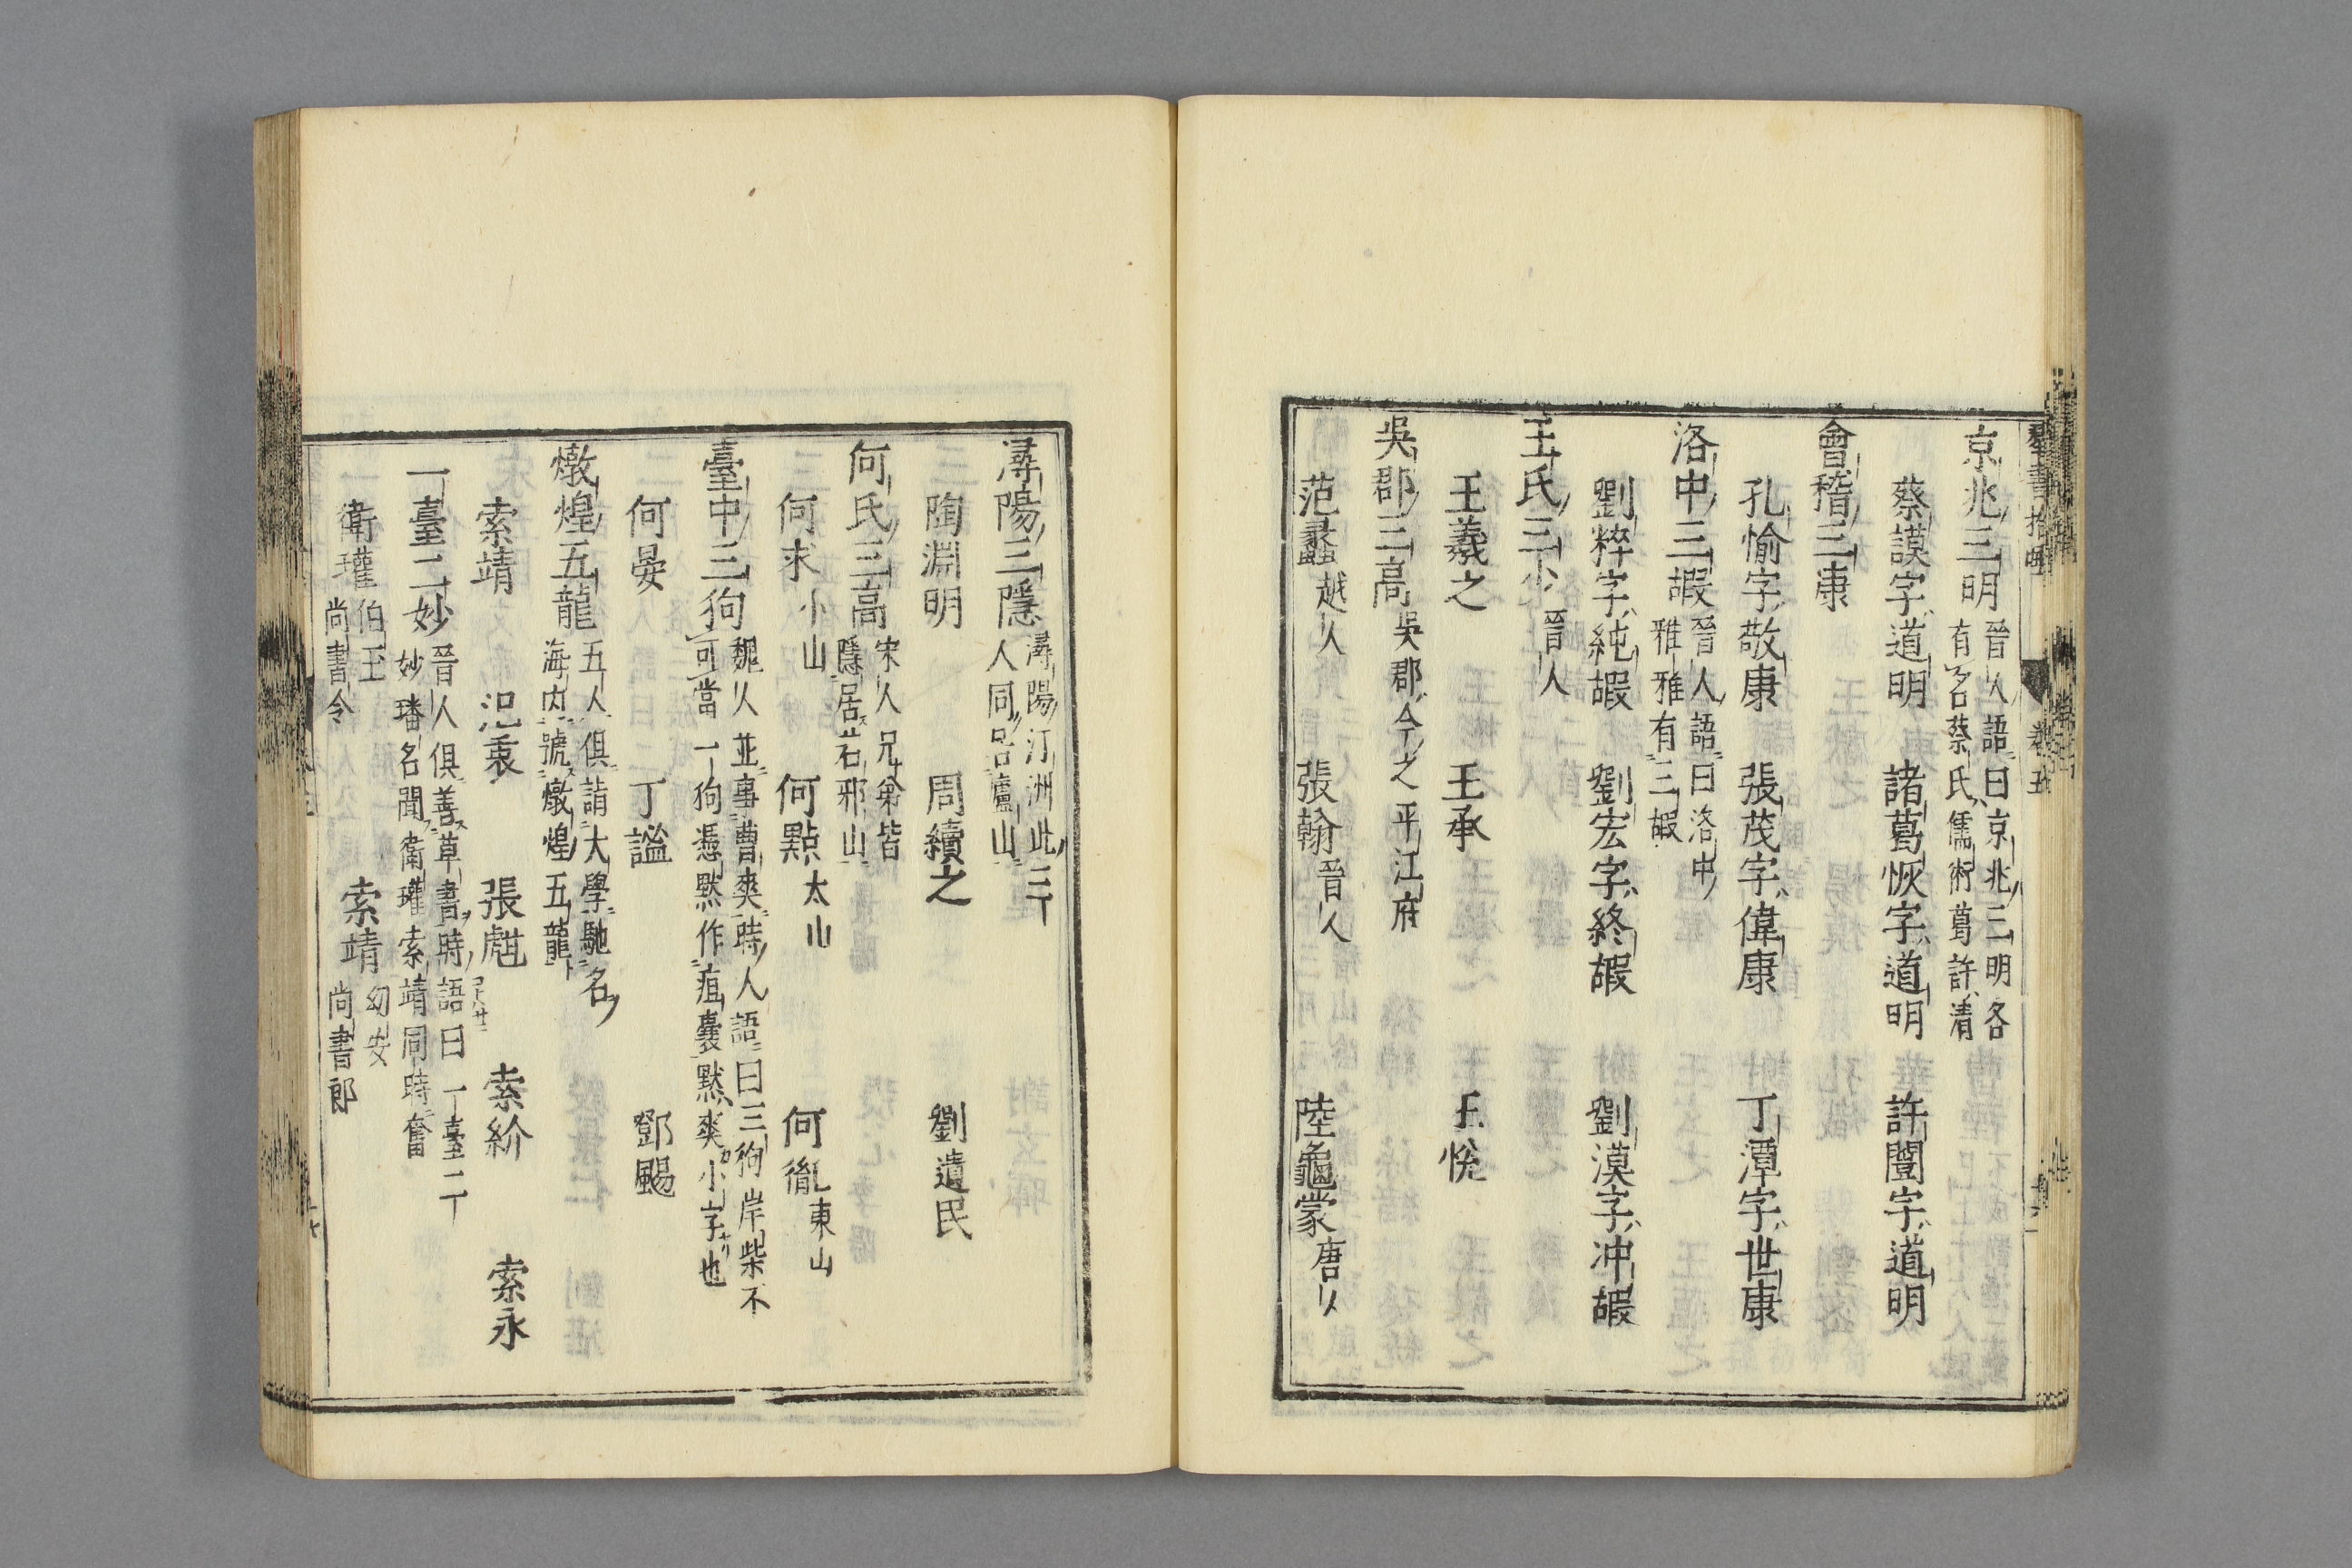 京兆三明 晉人語曰京兆三明各
有名蔡氏儒術葛許清
蔡謨字道明 諸葛恢字道明 許闓字道明
會稽三康
孔愉字敬康 張茂字偉康 丁潭字世康
洛中三嘏 晉人語曰洛中
雅雅有三嘏
劉粹字純嘏 劉宏字終嘏 劉漠字冲嘏
王氏三少 晉人
王羲之 王承 王悅
吳郡三高 吳郡今之平江府
范蠡 越人 張翰 晉人 陸龜蒙 唐人
潯陽三隱 潯陽汀洲此三
人同居廬山
陶淵明 周續之 劉遺民
何氏三高 宋人兄弟皆
隱居若邪山
何求 小山 何點 太山 何胤 東山
臺中三狗 魏人並事曹爽時人語曰三狗岸柴不
可當一狗憑默作疽囊默爽小字也
何晏 丁謐 鄧颺
燉煌五龍 五人俱詣大學馳名
海内號燉煌五龍
索靖 氾衷 張甝 索紾 索永
一臺二妙 晉人俱善草書時語曰一臺二
妙璠名聞衛瓘索靖同時奮
衛瓘 伯玉
尚書令 索靖 幼安
尚書郎